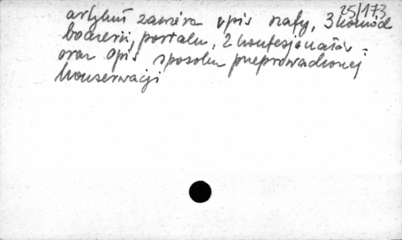 25/173
artykuł zawiera opis szafy, 3 komód
boazerii, portalu, 2 konfesjonałów -
oraz opis sposobu przeprowadzonej
konserwacji